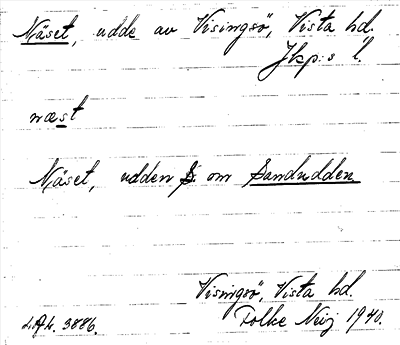 Näset, udde av Visingsö, Vista hd.
Jkp:s l.
næst
Näset, udden S. om Sandudden
Visingsö, Vista hd.
L.A.L. 3886. Folke Neij 1940.